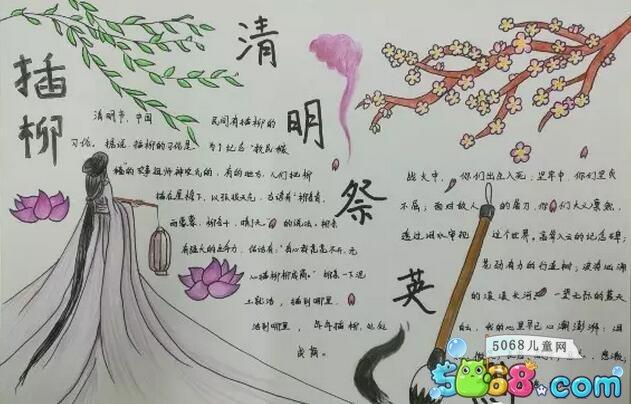 插柳
清明祭英
清明节,中国 民间有插柳的
习俗。据说插柳的习俗是为了纪念"教民稼
穑"的农事祖师神农氏的,有的地方,人们把柳
枝插在屋檐下,以预报天气,古谚有"柳条青,
雨蒙蒙;柳条干,晴了天"的说法。柳条
有强大的生命力,俗话有:"有心栽花花不开,无
心插柳柳成荫。"柳条一下泥
土就活,插到哪里,
活到哪里,年年插柳,处处
成荫。
战火中,你们出生入死;牢牢中,你们坚贞
不屈;面对敌人的屠刀,你们大义凛然,
透过泪水审视这个世界,高耸入云的纪念碑;
苍劲有力的行道树;波涛汹涌
的滚滚长河;一望无际的蓝天
我的心里早已心潮澎湃:
5068儿童网
5068.com